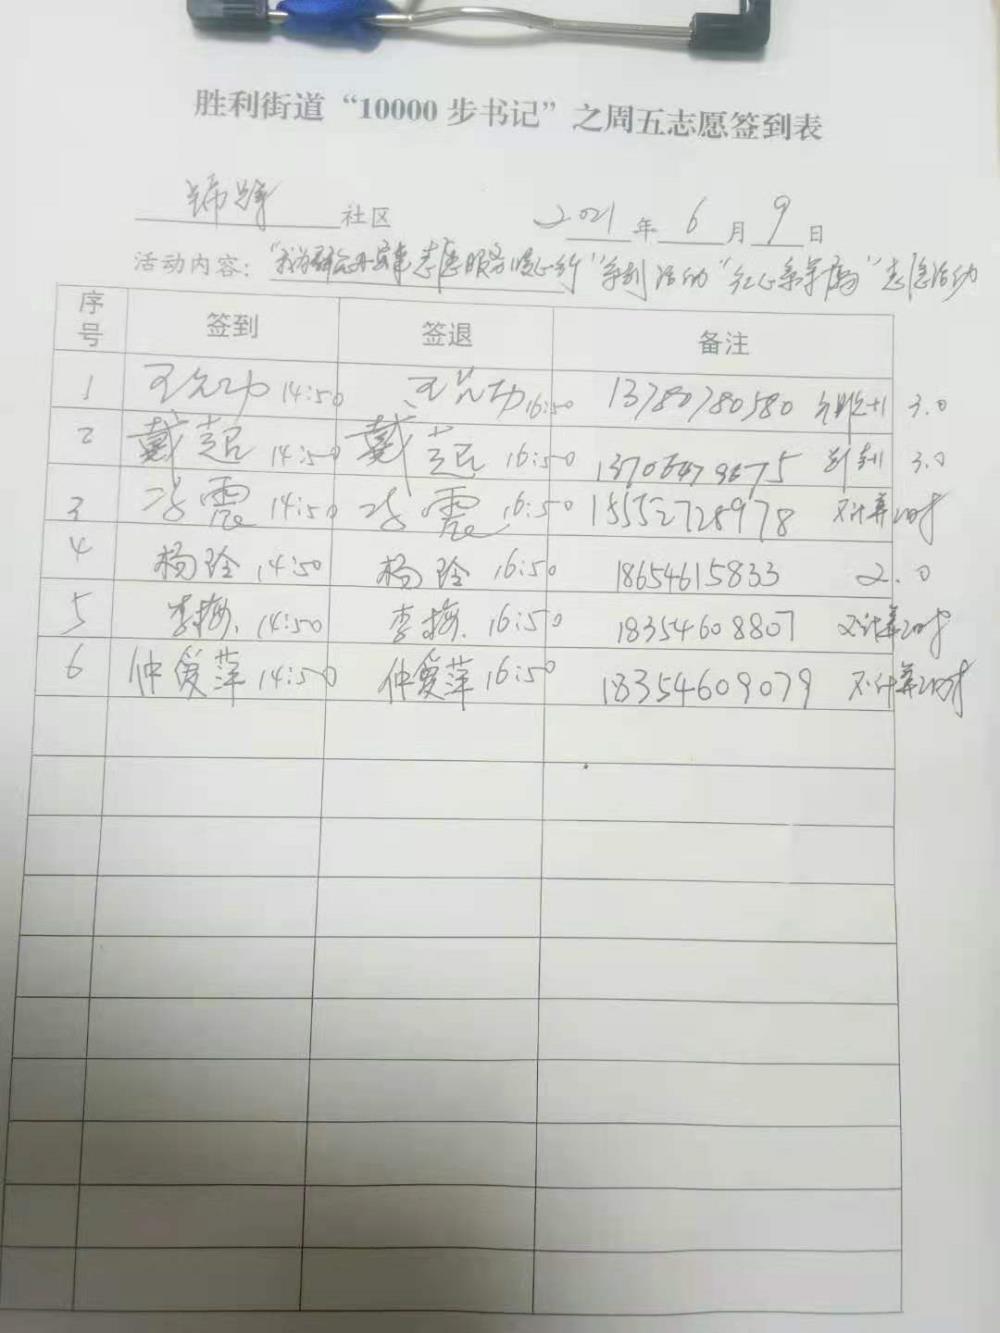 胜利街道“10000步书记”之周五志愿签到表
锦绣 社区 2021年6月9日
活动内容：“我为群众办实事志愿服务暖心行”系列活动“红心 ”志愿活动
序号 签到 签退 备注
1 14:50 16:50 13780780580 3.0
2 戴超 14:50 戴超 16:50 3.0
3 震 14:50 震 16:50 15552728978 不计算小时
4 杨玲 14:50 杨玲 16:50 18654615833 2.0
5 李梅 14:50 李梅 16:50 18354608807 不计算小时
6 仲爱萍 14:50 仲爱萍 16:50 18354609079 不计算小时